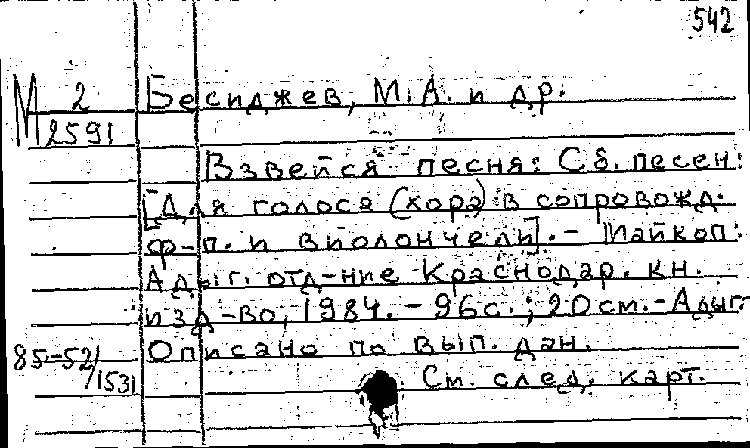 542
М 2
2591
Бесиджев, М.А. и др.
Взвейся песня: Сб. песен:
[Для голоса (хора) в сопровожд.
ф-п. и виолончели]. – Майкоп:
Адыг. отд-ние Краснодар. кн.
изд-во, 1984. – 96с.; 20см. – Адыг.
85-52/1531
Описано по вып. дан.
См. след. карт.